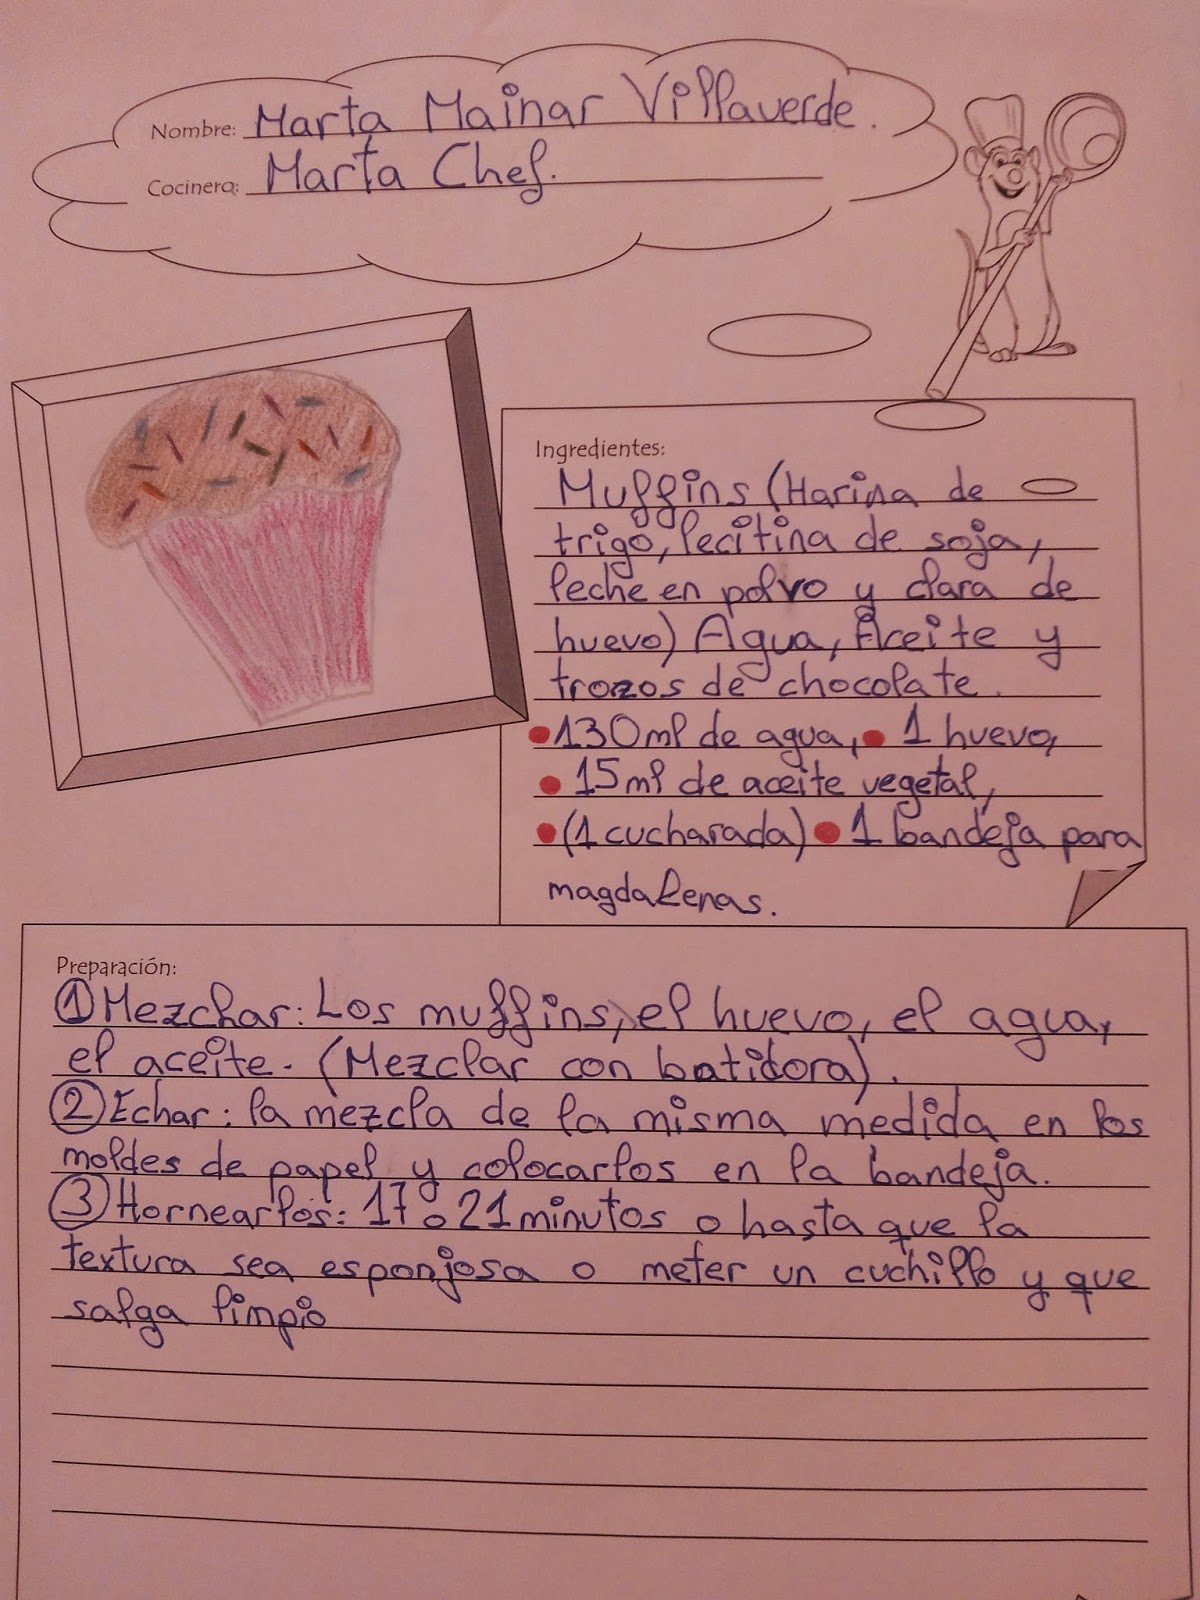 Nombre: Marta Mainar Villaverde.
Cocinera: Marta Chef.
Ingredientes:
Muffins (Harina de
trigo, lecitina de soja,
leche en polvo y clara de
huevo) Agua, Aceite y
trozos de chocolate.
•130ml de agua, • 1 huevo,
• 15ml de aceite vegetal,
•(1 cucharada) • 1 bandeja para
magdalenas.
Preparación:
① Mezclar: Los muffins, el huevo, el agua,
el aceite. (Mezclar con batidora).
② Echar: la mezcla de la misma medida en los
moldes de papel y colocarlos en la bandeja.
③ Hornearlos: 17 o 21 minutos o hasta que la
textura sea esponjosa o meter un cuchillo y que
salga limpio